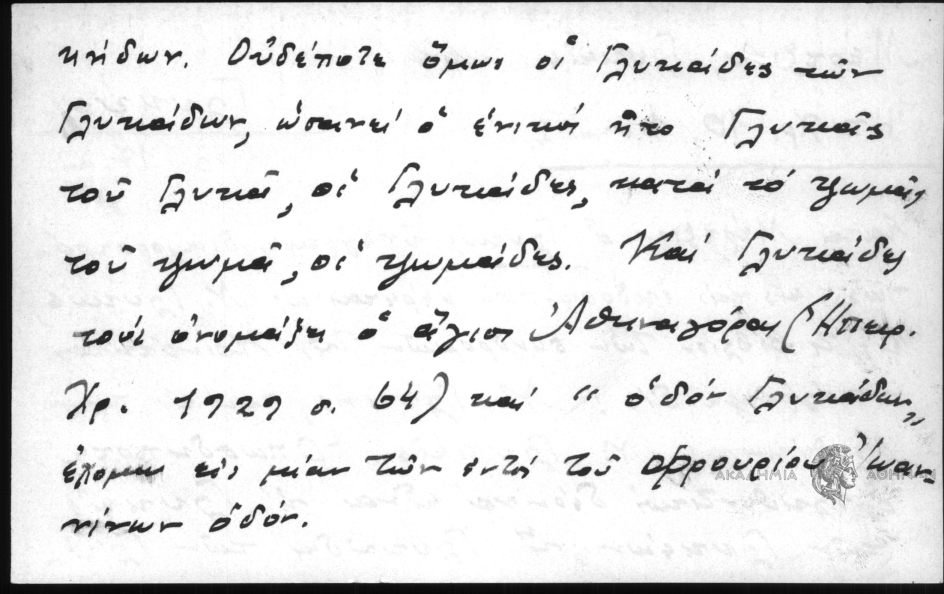 κήδων. Οὐδέποτε ὅμως οἱ Γλυκαίδες τῶν
Γλυκαίδων, ὡσανεί ὁ ἑνικός ἦτο Γλυκᾶς
τοῦ Γλυκᾶ, οἱ Γλυκαίδες, κατά τό ψωμᾶς
τοῦ ψωμᾶ, οἱ ψωμάδες. Καί Γλυκάδες
τούς ὀνομάζει ὁ ἅγιος Ἀθηναγόρας (Ἠπειρ.
Χρ. 1929 σ. 64) καί " ὁδόν Γλυκάδων"
ἔχομεν εἰς μίαν τῶν ἐντός τοῦ φρουρίου Ἰωαν-
νίνων ὁδόν.
ΑΚΑΔΗΜΙΑ ΑΘΗΝΩΝ